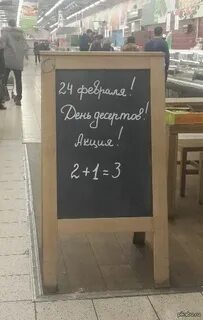 24 февраля!
День десертов!
Акция!
2+1=3
pikabu.ru